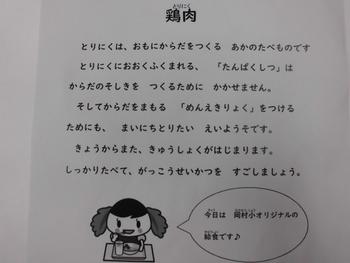 とりにく
鶏肉
とりにくは、おもにからだをつくる　あかのたべものです
とりにくにおおくふくまれる、「たんぱくしつ」は
からだのそしきを　つくるために　かかせません。
そしてからだをまもる　「めんえきりょく」をつける
ためにも、まいにちとりたい　えいようそです。
きょうからまた、きゅうしょくがはじまります。
しっかりたべて、がっこうせいかつを　すごしましょう。
今日は　岡村小オリジナルの
給食です♪